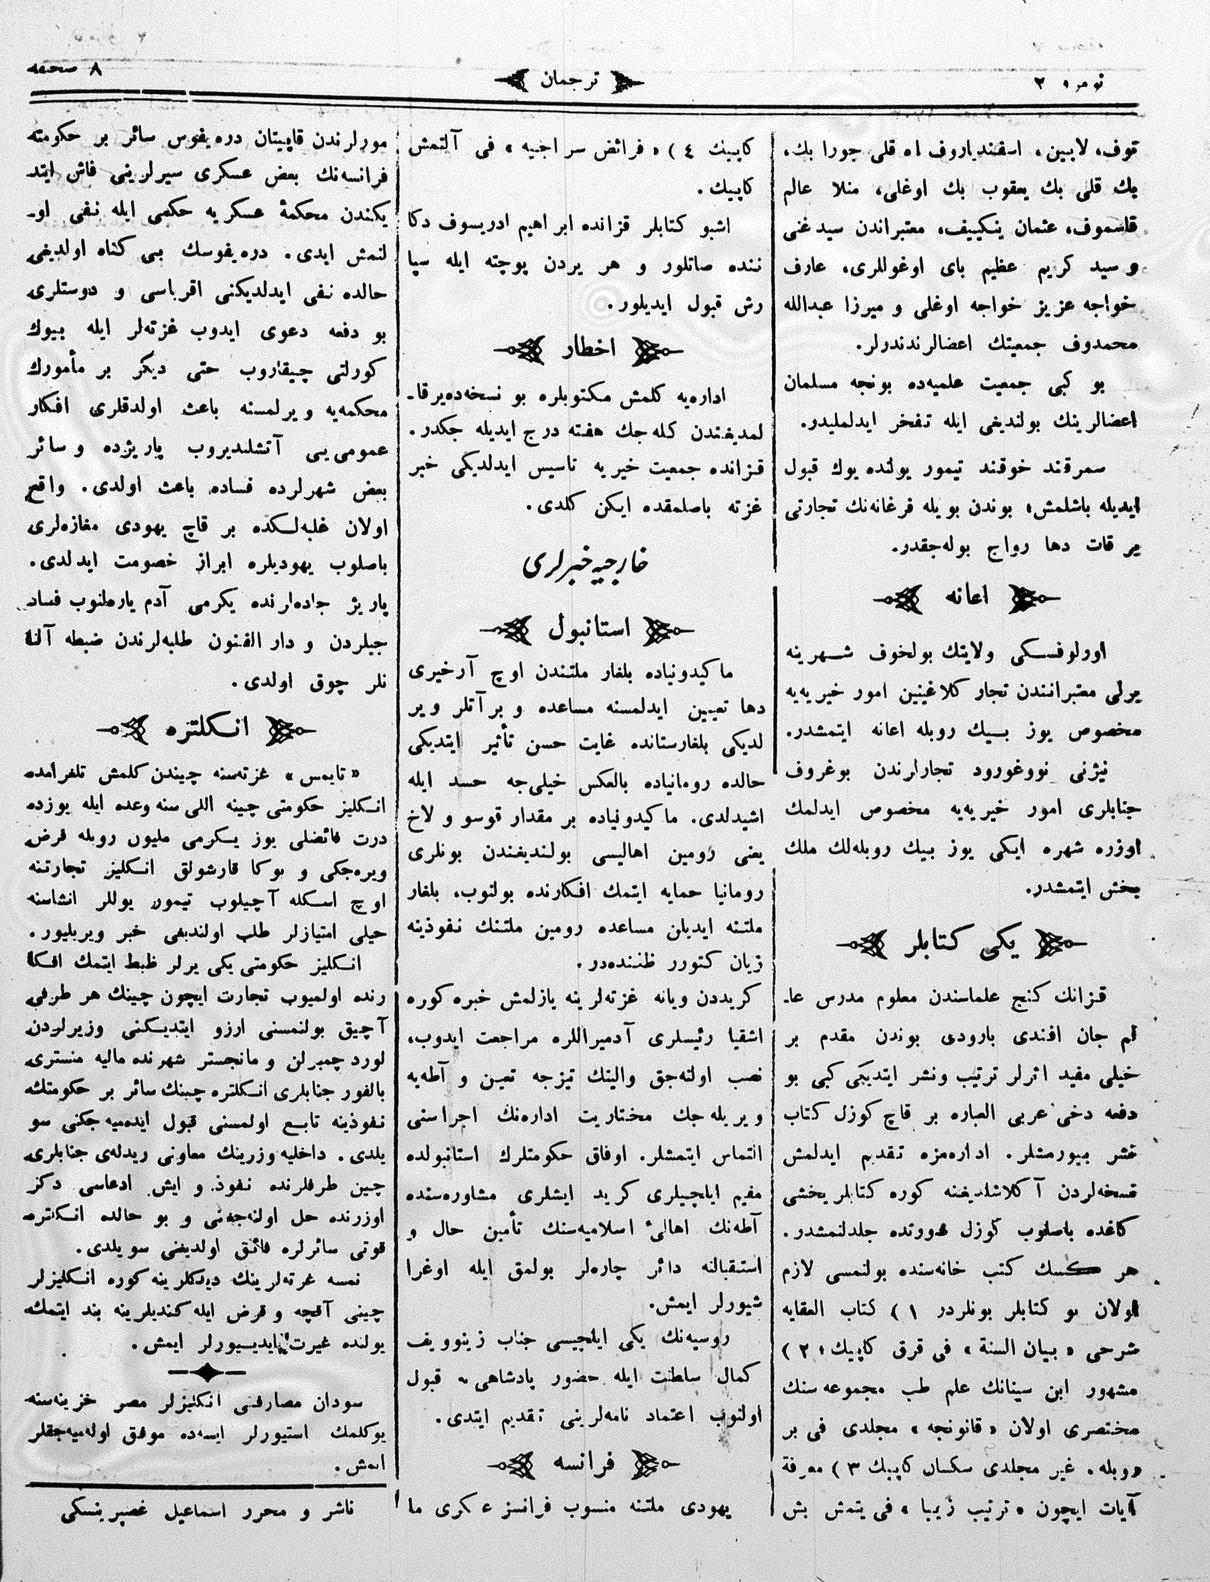 نومرو ٢
ترجمان
٨ صحیفه
توف، لاپین، اسفندیاروف اه قلی جورا بك،
بك قلی بك یعقوب بك اوغلی، منلا عالم
قاسموف، عثمان ینكییف، معتبراندن سید غنی
و سید كریم عظیم بای اوغوللری، عارف
خواجه عزیز خواجه اوغلی و میرزا عبدالله
محمدوف جمعیتك اعضالرندندرلر.
بو كبی جمعیت علمیه‌ده بونجه مسلمان
اعضالرینك بولندیغی ایله تفخر ایدلملیدر.
سمرقند خوقند تیمور یولنده یوك قبول
ایدیله باشلمش؛ بوندن بویله فرغانه‌نك تجارتی
بر قات دها رواج بوله‌جقدر.
اعانه
اورلوفسكی ولایتك بولخوف شهرینه
یرلی معتبرانندن تجار كلاغینین امور خیریه‌یه
مخصوص یوز بیك روبله اعانه ایتمشدر.
نیژنی نووغورود تجارلرندن بوغروف
جنابلری امور خیریه‌یه مخصوص ایدلمك
اوزره شهره ایكی یوز بیك روبله‌لك ملك
بخش ایتمشدر.
یكی كتابلر
قزانك كنج علماسندن معلوم مدرس عا-
لم جان افندی بارودی بوندن مقدم بر
خیلی مفید اثرلر ترتیب ونشر ایتدیكی كبی بو
دفعه دخی عربی العباره بر قاچ كوزل كتاب
نشر بیورمشلر. اداره‌مزه تقدیم ایدلمش
نسخه‌لردن آكلاشلدیغنه كوره كتابلر یخشی
كاغده باصلوب كوزل صورتده جلدلنمشدر.
هر كسك كتب خانه‌سنده بولنمسی لازم
اولان بو كتابلر بونلردر ١) كتاب العقایه
شرحی «بیان السنة» فی قرق كاپیك؛ ٢)
مشهور ابن سینانك علم طب مجموعه‌سنك
مختصری اولان «قانونجه» مجلدی فی بر
روبله. غیر مجلدی سكسان كاپیك ٣) معرفة
آیات ایچون «ترتیب زیبا» فی یتمش بش
كاپیك ٤) «فرائض سراجیه» فی آلتمش
كاپیك.
اشبو كتابلر قزانده ابراهیم ادریسوف دكا
ننده صاتلور و هر یردن پوچته ایله سپا
رش قبول ایدیلور.
اخطار
اداره‌یه كلمش مكتوبلره بو نسخه‌ده یر قا-
لمدیغندن كله‌جك هفته درج ایدیله جكدر.
قزانده جمعیت خیریه تاسیس ایدلدیكی خبر
غزته باصلمقده ایكن كلدی.
خارجیه خبرلری
استانبول
ماكیدونیاده بلغار ملتندن اوچ آرخیری
دها تعیین ایدلمسنه مساعده و برآتلر ویر
لدیكی بلغارستانده غایت حسن تأثیر ایتدیكی
حالده رومانیاده بالعكس خیلی‌جه حسد ایله
اشیدلدی. ماكیدونیاده بر مقدار قوسو و لاخ
یعنی رومین اهالیسی بولندیغندن بونلری
رومانیا حمایه ایتمك افكارنده بولنوب، بلغار
ملتنه ایدیلن مساعده رومین ملتنك نفوذینه
زیان كتورر ظننده‌در.
كریددن ویانه غزته‌لرینه یازلمش خبره كوره
اشقیا رئیسلری آدمیراللره مراجعت ایدوب،
نصب اولنه‌جق والینك تیزجه تعین و آطه‌یه
ویریله‌جك مختاریت اداره‌نك اجراسنی
التماس ایتمشلر. اوفاق حكومتلرك استانبولده
مقیم ایلچیلری كرید ایشلری مشاوره‌سنده
آطه‌نك اهالئ اسلامیه‌سنك تأمین حال و
استقبالنه دائر چاره‌لر بولمق ایله اوغرا
شیورلر ایمش.
روسیه‌نك یكی ایلچیسی جناب زینوویف
كمال سلطنت ایله حضور پادشاهی‌یه قبول
اولنوب اعتماد نامه‌لرینی تقدیم ایتدی.
فرانسه
یهودی ملتنه منسوب فرانسز عسكری ما
مورلرندن قاپیتان دره‌یفوس سائر بر حكومته
فرانسه‌نك بعض عسكری سیرلرینی فاش ایتد
یكندن محكمهٔ عسكریه حكمی ایله نفی او-
لنمش ایدی. دره‌یفوسك بی كناه اولدیغی
حالده نفی ایدلدیكنی اقرباسی و دوستلری
بو دفعه دعوی ایدوب غزته‌لر ایله بیوك
كورلتی چیقاروب حتی دیكر بر مأمورك
محكمه‌یه ویرلمسنه باعث اولدقلری افكار
عمومی‌یی آتشلندیروب پاریژده و سائر
بعض شهرلرده فساده باعث اولدی. واقع
اولان غلبه‌لكده بر قاچ یهودی مغازه‌لری
باصلوب یهودیلره ابراز خصومت ایدلدی.
پاریژ جاده‌لرنده یكرمی آدم یاره‌لنوب فساد
جیلردن و دار الفنون طلبه‌لرندن ضبطه آلنا
نلر چوق اولدی.
انكلتره
«تایمس» غزته‌سنه چیندن كلمش تلغرامده
انكلیز حكومتی چینه اللی سنه وعده ایله یوزده
درت فائضلی یوز یكرمی ملیون روبله قرض
ویره‌جكی و بوكا قارشولق انكلیز تجارتنه
اوچ اسكله آچیلوب تیمور یوللر انشاسنه
خیلی امتیازلر طلب اولندیغی خبر ویریلیور.
انكلیز حكومتی یكی یرلر ضبط ایتمك افكا
رنده اولمیوب تجارت ایچون چینك هر طرفی
آچیق بولنمسنی ارزو ایتدیكنی وزیرلردن
لورد چمبرلن و مانچستر شهرنده مالیه منستری
بالفور جنابلری انكلتره چینك سائر بر حكومتك
نفوذینه تابع اولمسنی قبول ایده‌میه‌جكنی سو
یلدی. داخلیه وزرینك معاونی ریدله‌ی جنابلری
چین طرفلرنده نفوذ و ایش ادعاسی دكز
اوزرنده حل اولنه‌جغنی و بو حالده انكلتره
قوتی سائرلره فائق اولدیغنی سویلدی.
نمسه غزته‌لرینك دیدكلرینه كوره انكلیزلر
چینی آقچه و قرض ایله كندیلرینه بند ایتمك
یولنده غیرت ایدییورلر ایمش.
سودان مصارفنی انكلیزلر مصر خزینه‌سنه
یوكلمك استیورلر ایسه‌ده موفق اوله‌میه‌جقلر
ایمش.
ناشر و محرر اسماعیل غصپرینسكی